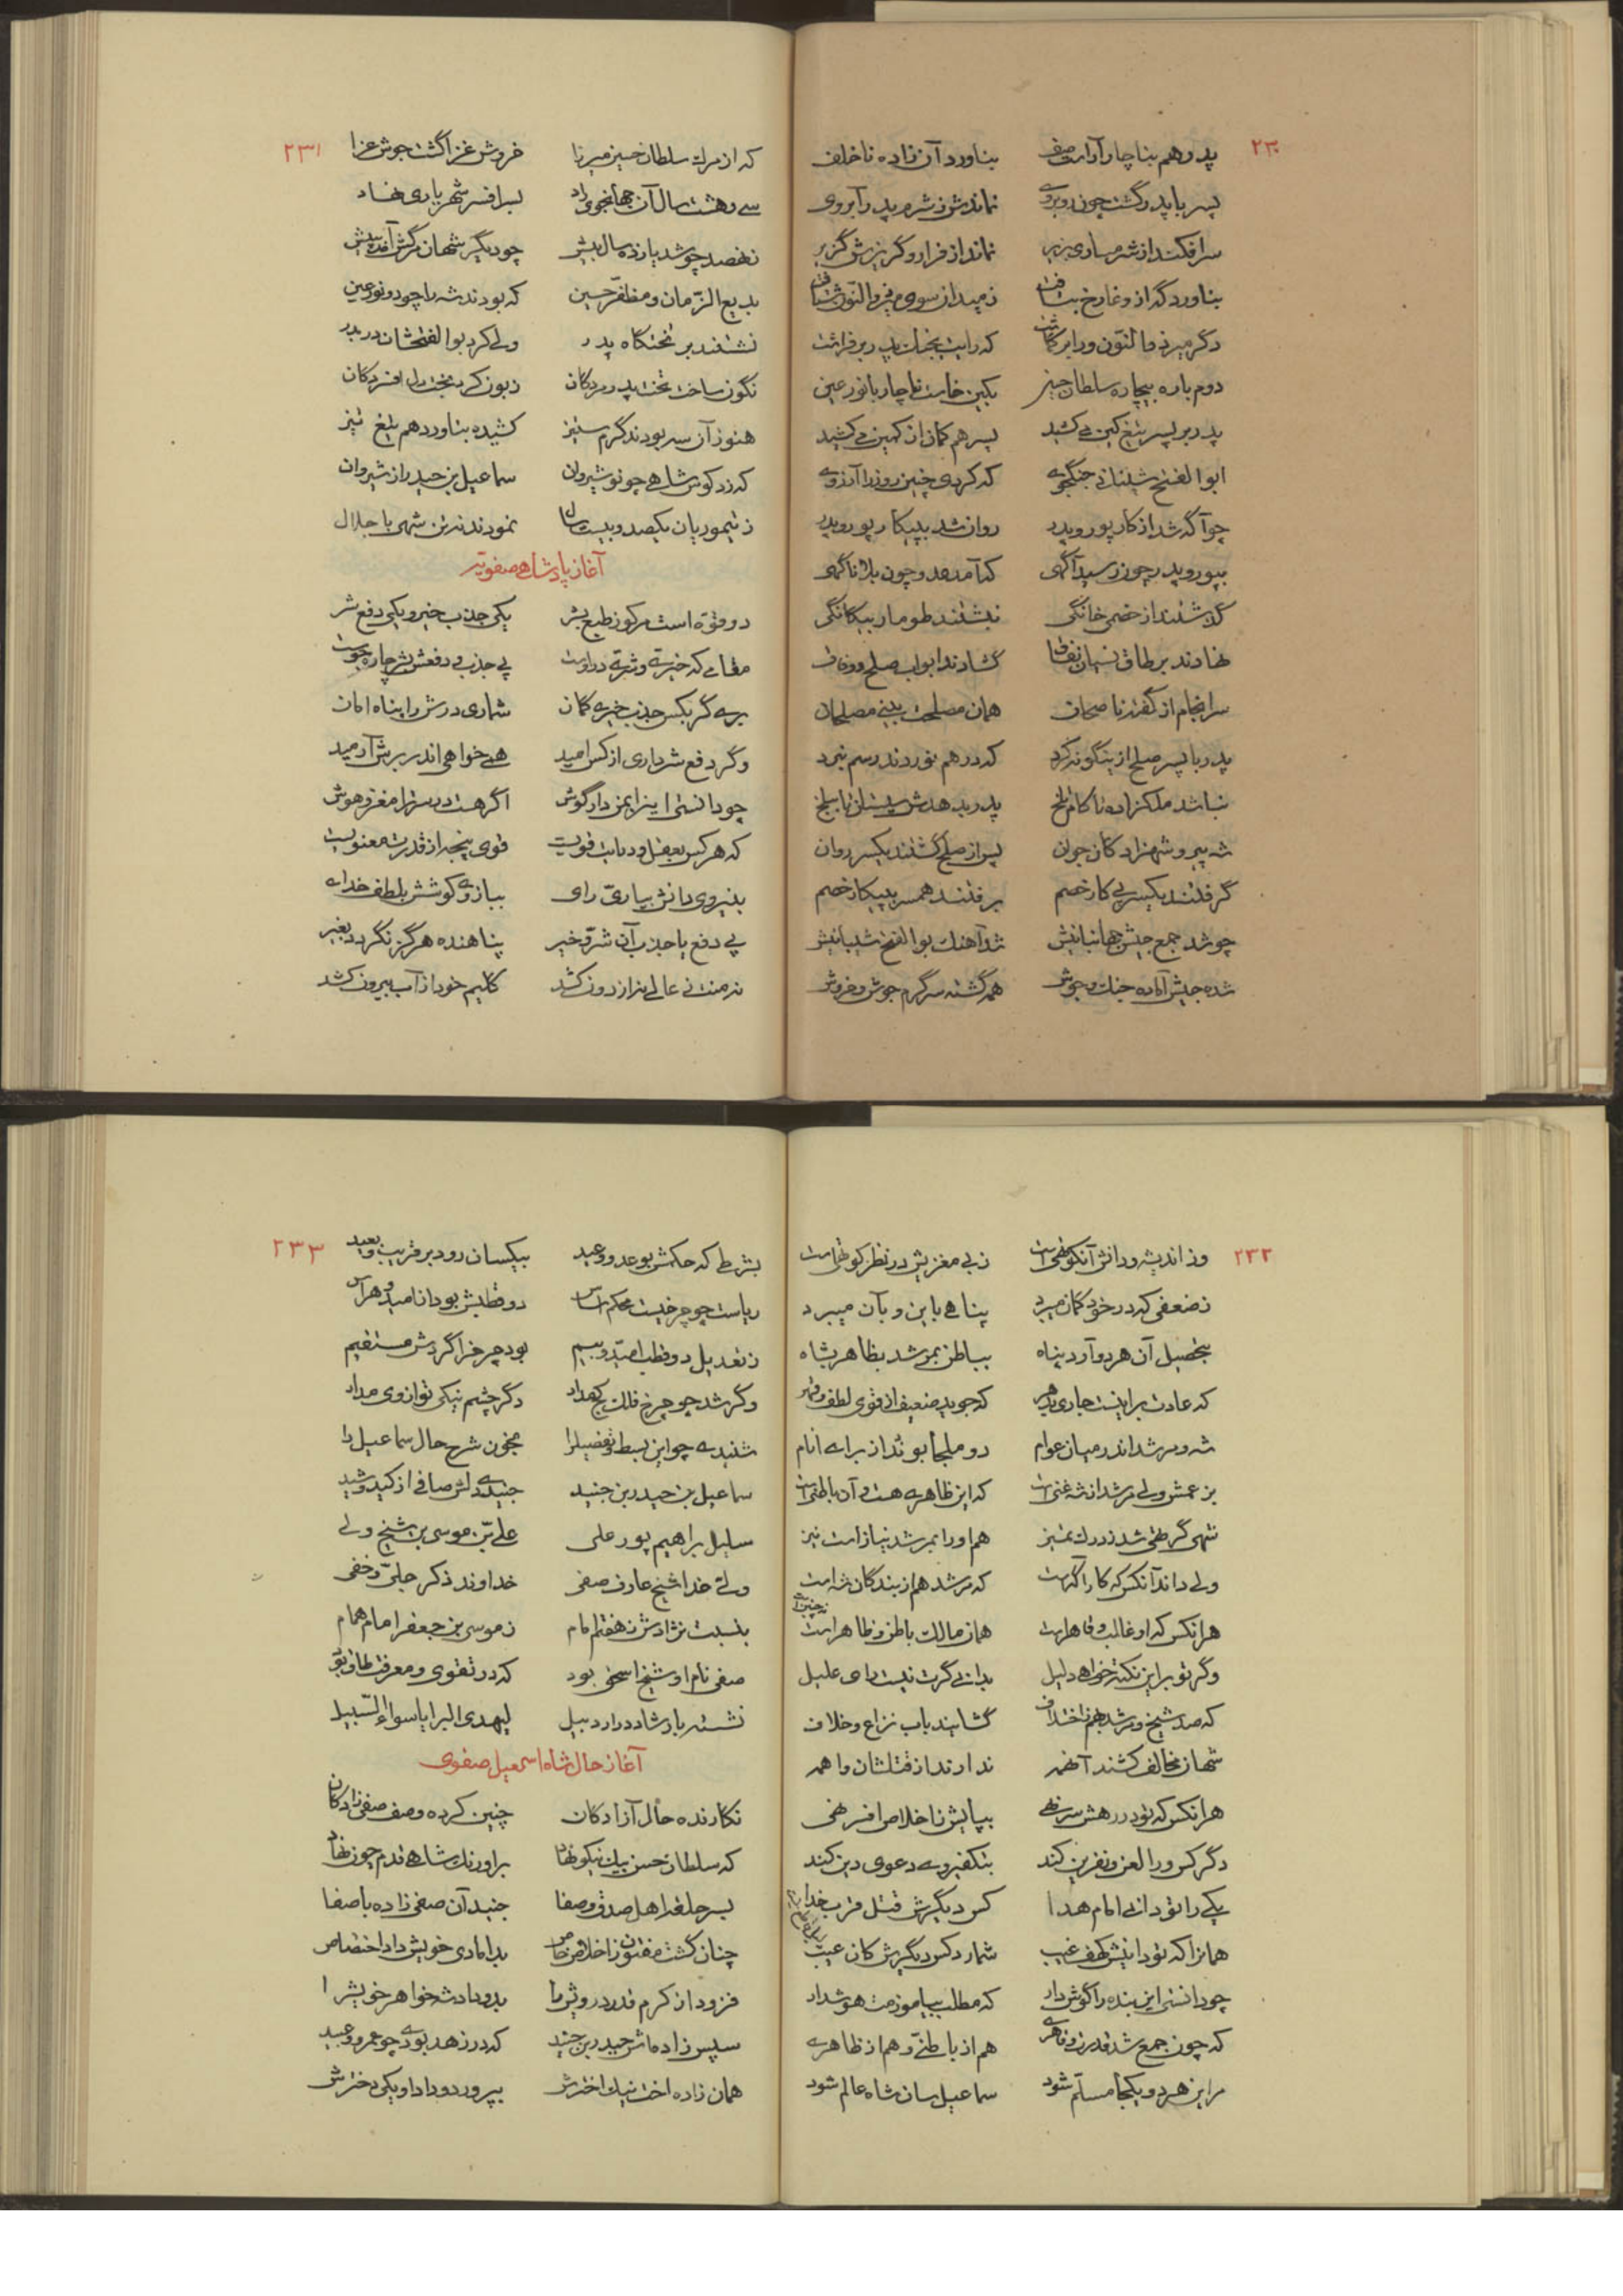 ۲۳۰
پدر هم بناچار آراست صف بناورد آن زاده ناخلف
پسر با پدر گشت چون روبروی نماندش ز شرم پدر آبروی
سر افکند از شرمساری بزیر نماند از فرار و گریزش گزیر
بناورد گه از وغا رخ بتافت ز میدان سوی
دگر میرذوالنون ورا بر گماشت که رایت بجنگ پدر بر فراشت
دوم باره بیچاره سلطان حسین بکین خاست ناچار با نور عین
پدر بر پسر تیغ کین می کشید پسر هم کمان از کمین می کشید
ابوالفتح شیبانی جنگجوی که کردی چنین روز را آرزوی
چو آگه شد از کار پور و پدر روان شد به پیکار پور و پدر
بپور و پدر چون رسید آگهی که آمد عدو چون بلا ناگهی
گذشتند از خصمی خانگی نبشتند طومار بیگانگی
نهادند بر طاق نسیان نفاق گشادند ابواب صلح و وفاق
سرانجام از گفت ناصحان همان مصلحت بینی مصلحان
پدر با پسر صلح ازینگونه کرد که در هم نوردند رسم نبرد
نباشد ملکزاده تا کام تلخ پدر بدهدش سیستان تا ببلخ
شه پیر و شهزادگان جوان پس از صلح گشتند یکسر روان
گرفتند یکسر پی کار خصم برفتند همسر به پیکار خصم
چو شد جمع جیش جهانبانیش شد آهنگ بوالفتح شیبانیش
شده جیش آماده جنگ و جوش همه گشته سرگرم جوش و خروش
۲۳۱
که از مرگ سلطان حسین میرزا خروش غزا گشت جوش عزا
سی و هشت سال آن جهانجوی راد بسر افسر شهریاری نهاد
ز نهصد چو شد یازده سال بیش چو دیگر شهان مرگش آمد به پیش
بدیع الزمان و مظفر حسین که بودند شه را چو دو نور عین
نشستند بر تختگاه پدر ولی کرد بوالفتحشان در بدر
نگون ساخت تخت پدر مردگان زبون کرد بخت دل افسردگان
هنوز آن سه بودند گرم ستیز کشیده بناورد هم تیغ تیز
که زد کوس شاهی چو نوشیروان سماعیل بن حیدر از شیروان
ز تیموریان یکصد و بیست سال نمودند نه تن شهی با جلال
آغاز پادشاهی صفویه
دو قوه است مرکوز طبع بشر یکی جذب خیر و یکی دفع شر
مقامی که خیری و شری دراوست پی جذب و دفعش بشر چاره جوست
بری گر بکس جذب خیری گمان شماری درش را پناه امان
وگر دفع شر داری از کس امید همی خواهی اندر برش آرمید
چو دانستی این را بمن دار گوش اگر هست در سر ترا مغز و هوش
که هر کس بعقل و درایت قویست قوی پنجه از قدرت معنویست
بنیروی دانش بیاری رای ببازوی کوشش بلطف خدای
پی دفع یا جذب آن شر و خیر پناهنده هرگز نگردد بغیر
نه منت ز عالی نه از دون کشد گلیم خود از آب بیرون کشد
۲۳۲
ور اندیشه و دانش آنکو تهی است ز بی مغزیش در نظر کوتهی است
ز ضعفی که در خود گمان میبرد پناهی باین و بآن میبرد
بتحصیل آن هر دو آرد پناه بباطن بمرشد بظاهر بشاه
که عادت بر اینست جاری بدهر که جوید ضعیف از قوی لطف و قهر
شه و مرشد اندر میان عوام دو ملجأ بوند از برای انام
بزعمش ولی مرشد از شه غنی است که این ظاهری هست و آن باطنی است
شهی گر تهی شد ز درک تمیز هم او را بمرشد نیاز است نیز
ولی داند آنکس که کار آگه است که مرشد هم از بندگان شه است
هر آنکس که او غالب و قاهر است همان مالک باطن و ظاهر است
وگر تو بر این نکته خواهی دلیل بدانی گرت نیست رای علیل
که صد شیخ و مرشد بهم ز اختلاف گشایند باب نزاع و خلاف
شهان مخالف کشند آنهمه ندارند از قتلشان واهمه
هر آنکس که تو در رهش سر نهی بپایش ز اخلاص افسر نهی
دگر کس ورا لعن و نفرین کند بتکفیر وی دعوی دین کند
یکی را تو دانی امام هدا کس دیگرش قتل قرب خدا
همانرا که تو دانیش کهف غیب شمارد کس دیگرش کان عیب
چو دانستی این بنده را گوش دار که مطلب بیاموزمت هوشدار
که چون جمع شد قدرت و قاهری هم از باطنی و هم از ظاهری
مر این هر دو یکجا مسلم شود سماعیل سان شاه عالم شود
۲۳۳
بشرطی که حکمش بوعد و وعید بیکسان رود بر قریب و بعید
ریاست چو چرخیست محکم اساس دو قطبش بود از امید و هراس
ز تعدیل دو قطب امید و بیم بود چرخ را گردش مستقیم
وگر شد چو چرخ فلک کج مدار دگر چشم نیکی تو از وی مدار
شنیدی چو این بسط و تفصیل را بخون شرح حال سماعیل را
سماعیل بن حیدر بن جنید جنیدی دلش صافی از کید و شید
سلیل براهیم پور علی علی بن موسی بن شیخ ولی
ولی خدا شیخ عارف صفی خداوند ذکر جلی و خفی
بنسبت نژادش ز هفتم امام ز موسی بن جعفر امام همام
صفی نام او شیخ اسحق بود که در تقوی و معرفت طاق بود
نشسته بارشاد در اردبیل لیهدی البرایا سواء السبیل
آغاز حال شاه اسمعیل صفوی
نگارنده حال آزادگان چنین کرده وصف صفی زادگان
که سلطان حسن بیک نیکو نهاد بر اورنگ شاهی قدم چون نهاد
بسر حلقه اهل صدق و صفا جنید آن صفی زاده باصفا
چنان گشت مفتون ز اخلاص خاص بدامادی خویش داد اختصاص
فزود از کرم قدر درویش را بدو داد شه خواهر خویش را
سپس زاده اش حیدر بن جنید که در زهد بودی چو عمرو و عبید
همان زاده اخت نیک اخترش بپرورد و داد او یکی دخترش